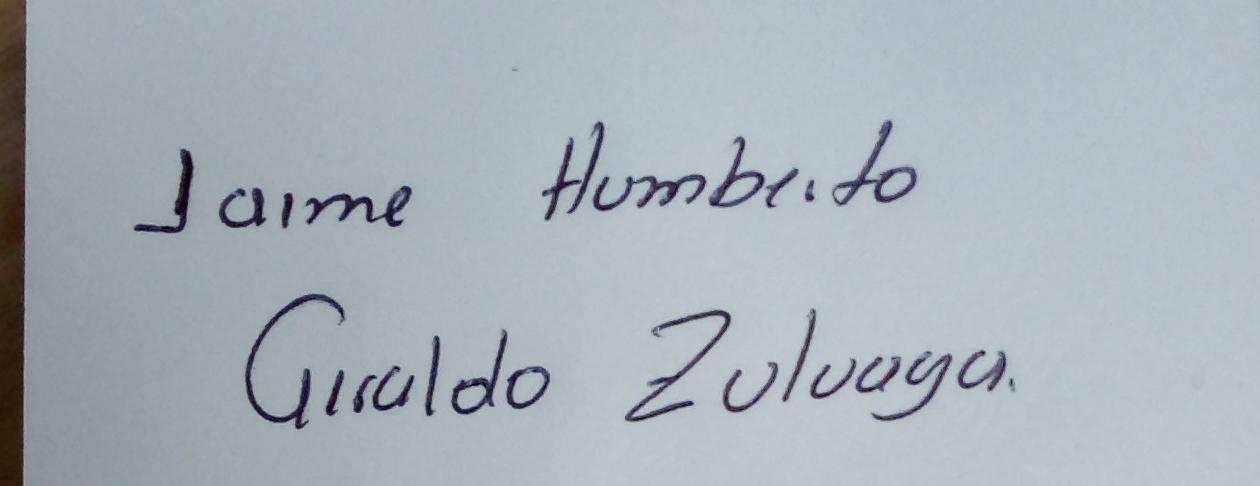 Jaime Humberto
Giraldo Zuluaga.